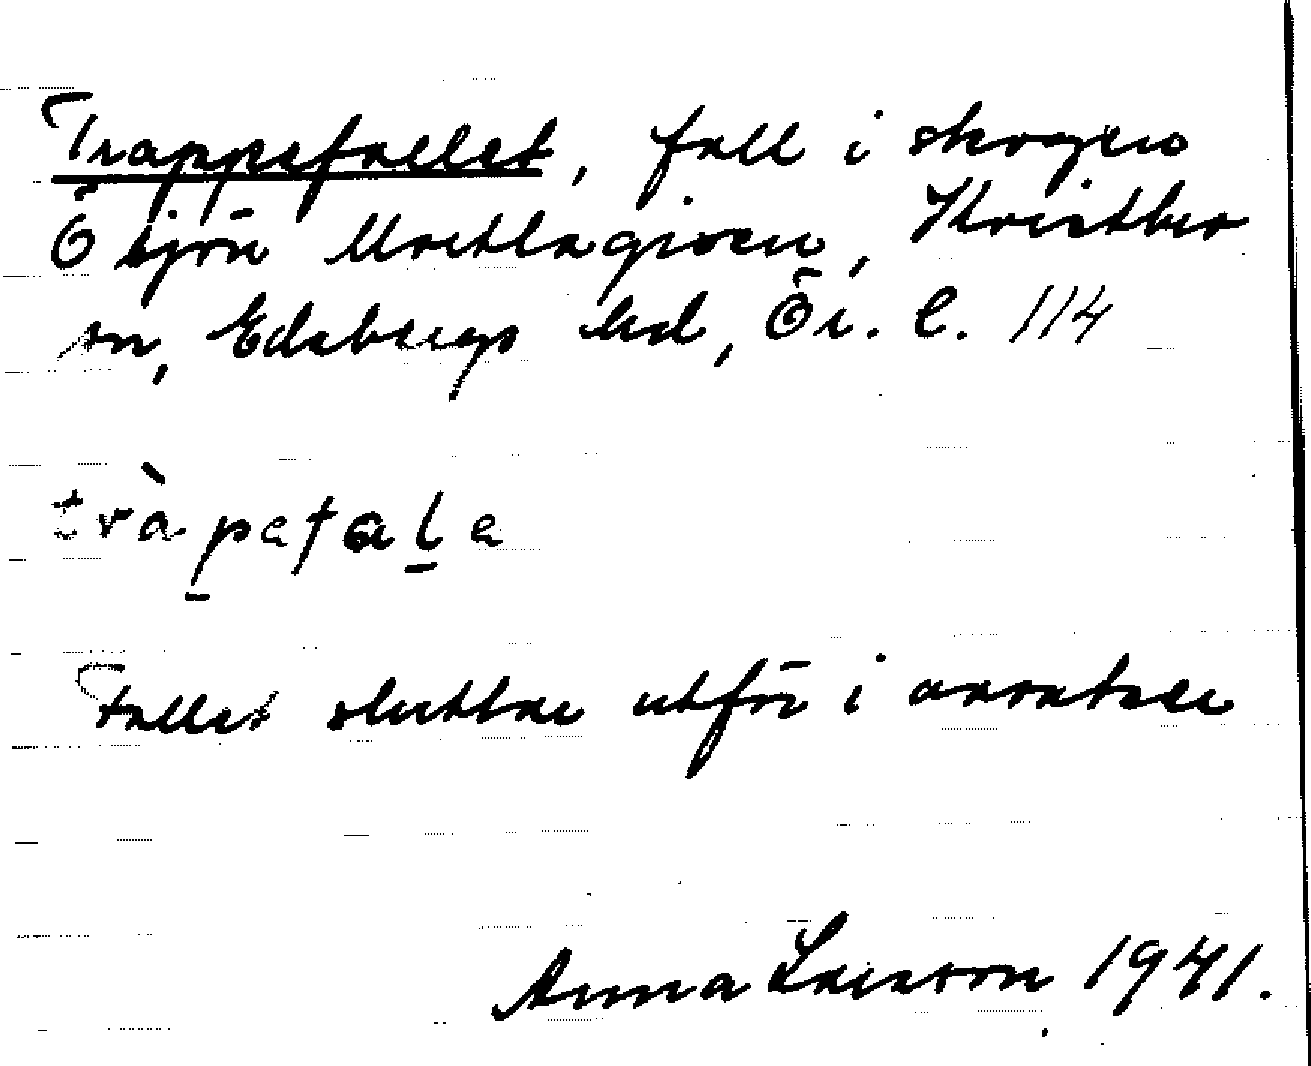 Trappefallet, fall i skogen
Ö sjön Multlagivaren, Kvistbro
sn, Edsbergs hd, Ör. l. 114
tràpefaḻe
Fallet sluttar utför i avsatser
Anna Larsson 1941.